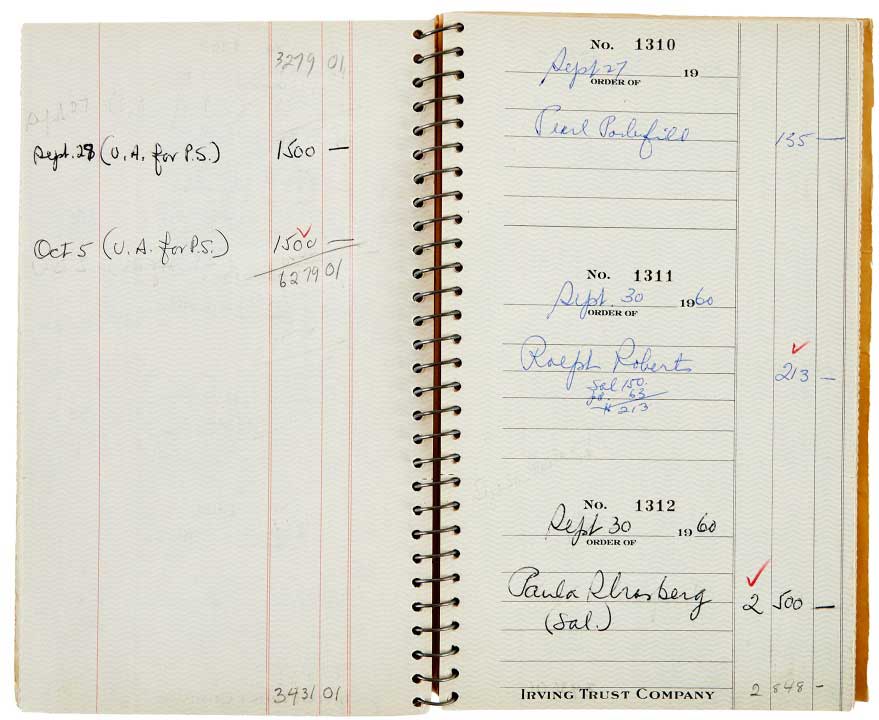 3279 01
Sept 27
Sept. 28 (U. A. for P.S.) 1500 —
Oct 5 (U. A. for P.S.) 1500 —
6279 01
3431 01
No. 1310
Sept 27 19
ORDER OF
Pearl Porterfield 135 —
No. 1311
Sept. 30 1960
ORDER OF
Ralph Roberts 213 —
Sal 150.
63
$ 213
No. 1312
Sept 30 1960
ORDER OF
Paula Strasberg 2 500 —
(Sal.)
IRVING TRUST COMPANY 2 848 -